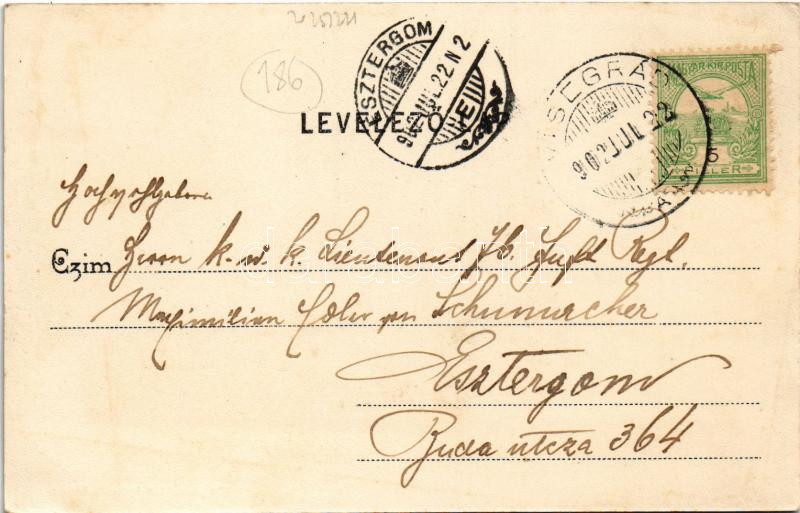 186
LEVELEZŐ L
ESZTERGOM
902 JUL. 22 N 2
E
VISEGRÁD
902 JUL 22
MAGYAR KIR. POSTA
5
FILLÉR
Hochwohlgeboren
Czim Herrn k. u. k. Lieutenant 76. Inft Regt.
Maximilian Edler von Schumacher
Esztergom
Buda utcza 364